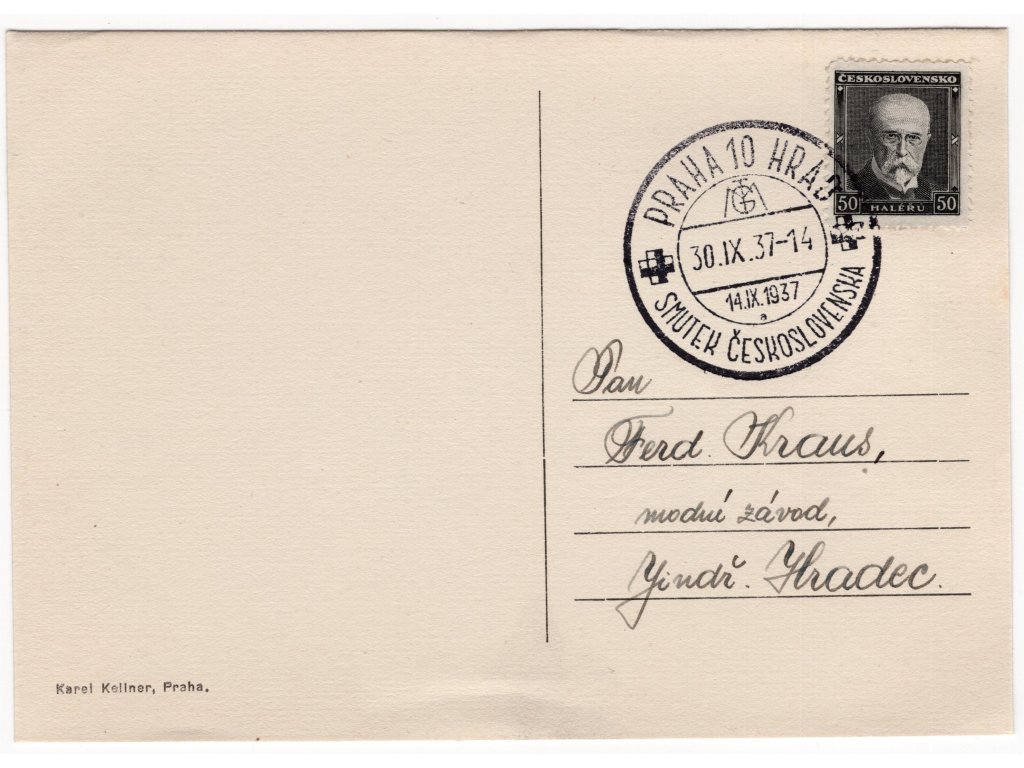 ČESKOSLOVENSKO
50 HALÉŘŮ 50
PRAHA 10 HRAD
TGM
30.IX.37-14
14.IX.1937
a
SMUTEK ČESKOSLOVENSKA
Pan
Ferd. Kraus,
modní závod,
Jindř. Hradec.
Karel Kellner, Praha.